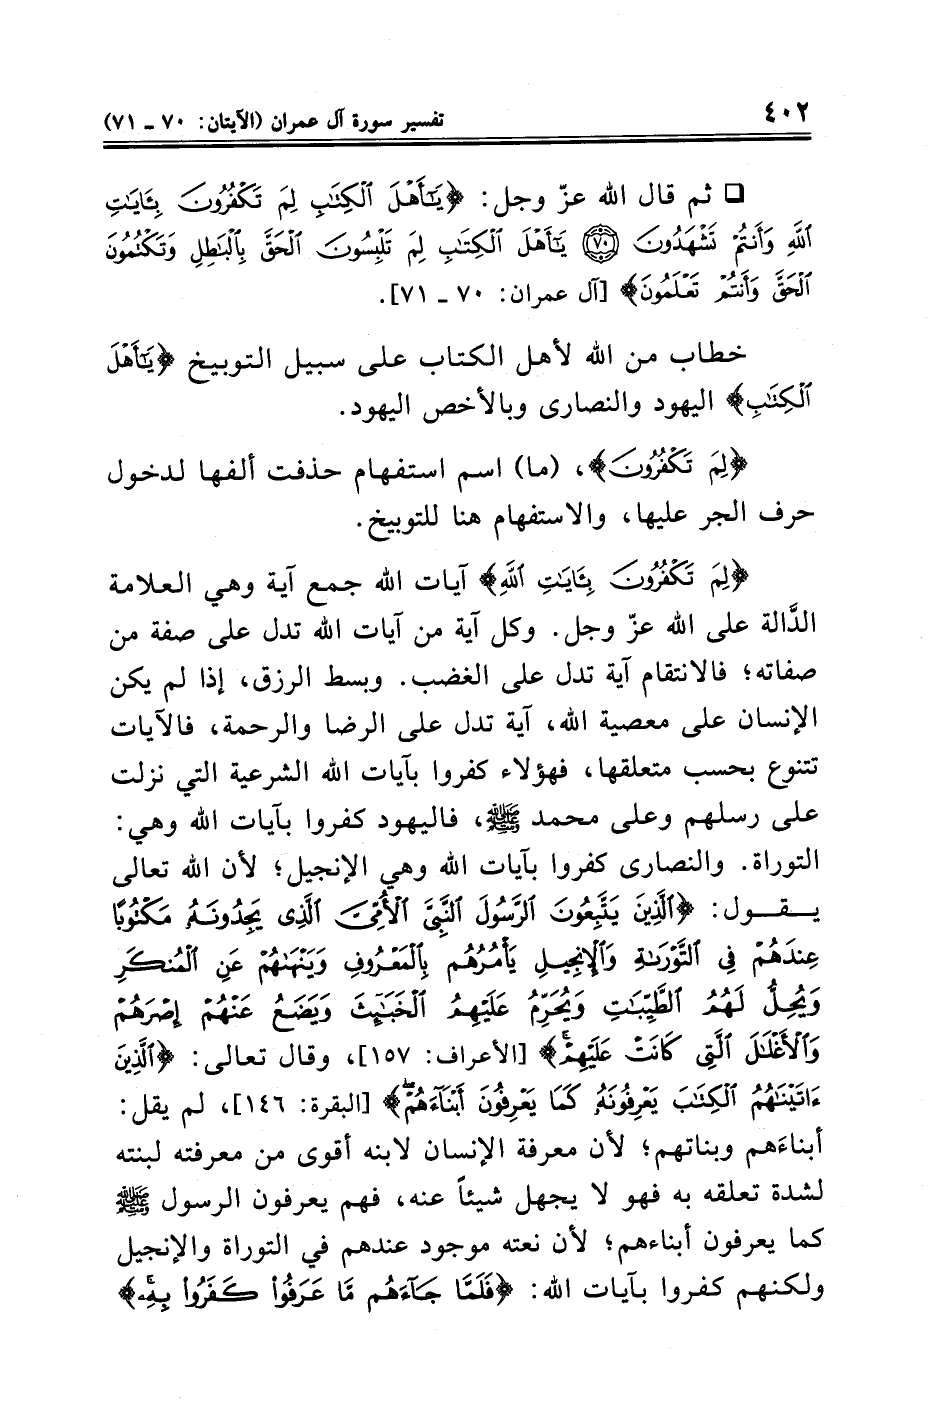 ٤٠٢ تفسير سورة آل عمران (الآيتان: ٧٠ ـ ٧١)
❑ ثم قال الله عزّ وجل: ﴿يَٰٓأَهْلَ ٱلْكِتَٰبِ لِمَ تَكْفُرُونَ بِـَٔايَٰتِ
ٱللَّهِ وَأَنتُمْ تَشْهَدُونَ ۝٧٠ يَٰٓأَهْلَ ٱلْكِتَٰبِ لِمَ تَلْبِسُونَ ٱلْحَقَّ بِٱلْبَٰطِلِ وَتَكْتُمُونَ
ٱلْحَقَّ وَأَنتُمْ تَعْلَمُونَ﴾ [آل عمران: ٧٠ ـ ٧١].
خطاب من الله لأهل الكتاب على سبيل التوبيخ ﴿يَٰٓأَهْلَ
ٱلْكِتَٰبِ﴾ اليهود والنصارى وبالأخص اليهود.
﴿لِمَ تَكْفُرُونَ﴾، (ما) اسم استفهام حذفت ألفها لدخول
حرف الجر عليها، والاستفهام هنا للتوبيخ.
﴿لِمَ تَكْفُرُونَ بِـَٔايَٰتِ ٱللَّهِ﴾ آيات الله جمع آية وهي العلامة
الدَّالة على الله عزّ وجل. وكل آية من آيات الله تدل على صفة من
صفاته؛ فالانتقام آية تدل على الغضب. وبسط الرزق، إذا لم يكن
الإنسان على معصية الله، آية تدل على الرضا والرحمة، فالآيات
تتنوع بحسب متعلقها، فهؤلاء كفروا بآيات الله الشرعية التي نزلت
على رسلهم وعلى محمد ﷺ، فاليهود كفروا بآيات الله وهي:
التوراة. والنصارى كفروا بآيات الله وهي الإنجيل؛ لأن الله تعالى
يـقـول: ﴿ٱلَّذِينَ يَتَّبِعُونَ ٱلرَّسُولَ ٱلنَّبِىَّ ٱلْأُمِّىَّ ٱلَّذِى يَجِدُونَهُۥ مَكْتُوبًا
عِندَهُمْ فِى ٱلتَّوْرَىٰةِ وَٱلْإِنجِيلِ يَأْمُرُهُم بِٱلْمَعْرُوفِ وَيَنْهَىٰهُمْ عَنِ ٱلْمُنكَرِ
وَيُحِلُّ لَهُمُ ٱلطَّيِّبَٰتِ وَيُحَرِّمُ عَلَيْهِمُ ٱلْخَبَٰٓئِثَ وَيَضَعُ عَنْهُمْ إِصْرَهُمْ
وَٱلْأَغْلَٰلَ ٱلَّتِى كَانَتْ عَلَيْهِمْ ۚ﴾ [الأعراف: ١٥٧]، وقال تعالى: ﴿ٱلَّذِينَ
ءَاتَيْنَٰهُمُ ٱلْكِتَٰبَ يَعْرِفُونَهُۥ كَمَا يَعْرِفُونَ أَبْنَآءَهُمْ ۖ﴾ [البقرة: ١٤٦]، لم يقل:
أبناءَهم وبناتهم؛ لأن معرفة الإنسان لابنه أقوى من معرفته لبنته
لشدة تعلقه به فهو لا يجهل شيئاً عنه، فهم يعرفون الرسول ﷺ
كما يعرفون أبناءهم؛ لأن نعته موجود عندهم في التوراة والإنجيل
ولكنهم كفروا بآيات الله: ﴿فَلَمَّا جَآءَهُم مَّا عَرَفُوا۟ كَفَرُوا۟ بِهِۦ ۚ﴾